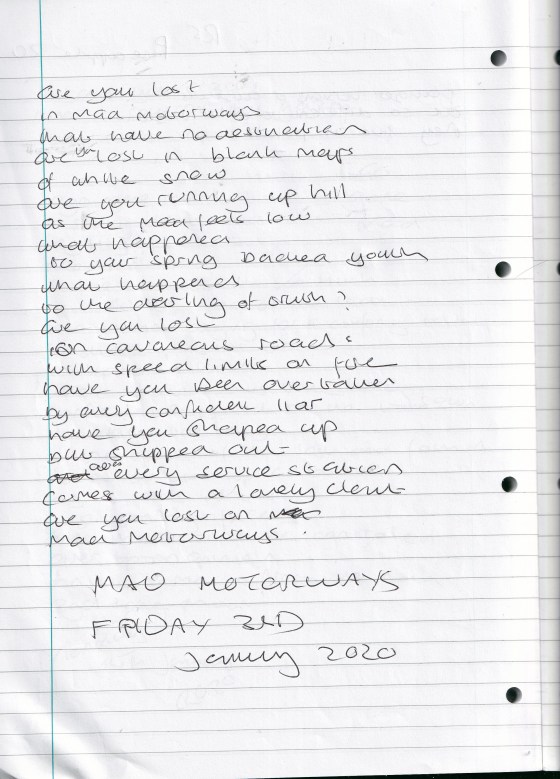 are you lost
in mad motorways
that have no destination
are you lost in blank maps
of white snow
are you running up hill
as the mood feels low
what happened
to your spring backed youth
what happened
to the darling of truth?
are you lost
on cavaneous roads
with speed limits on fire
have you been overtaken
by every confident liar
have you shaped up
but shipped out
does every service station
comes with a lonely clout
are you lost on
mad motorways.
MAD MOTORWAYS
FRIDAY 3RD
January 2020